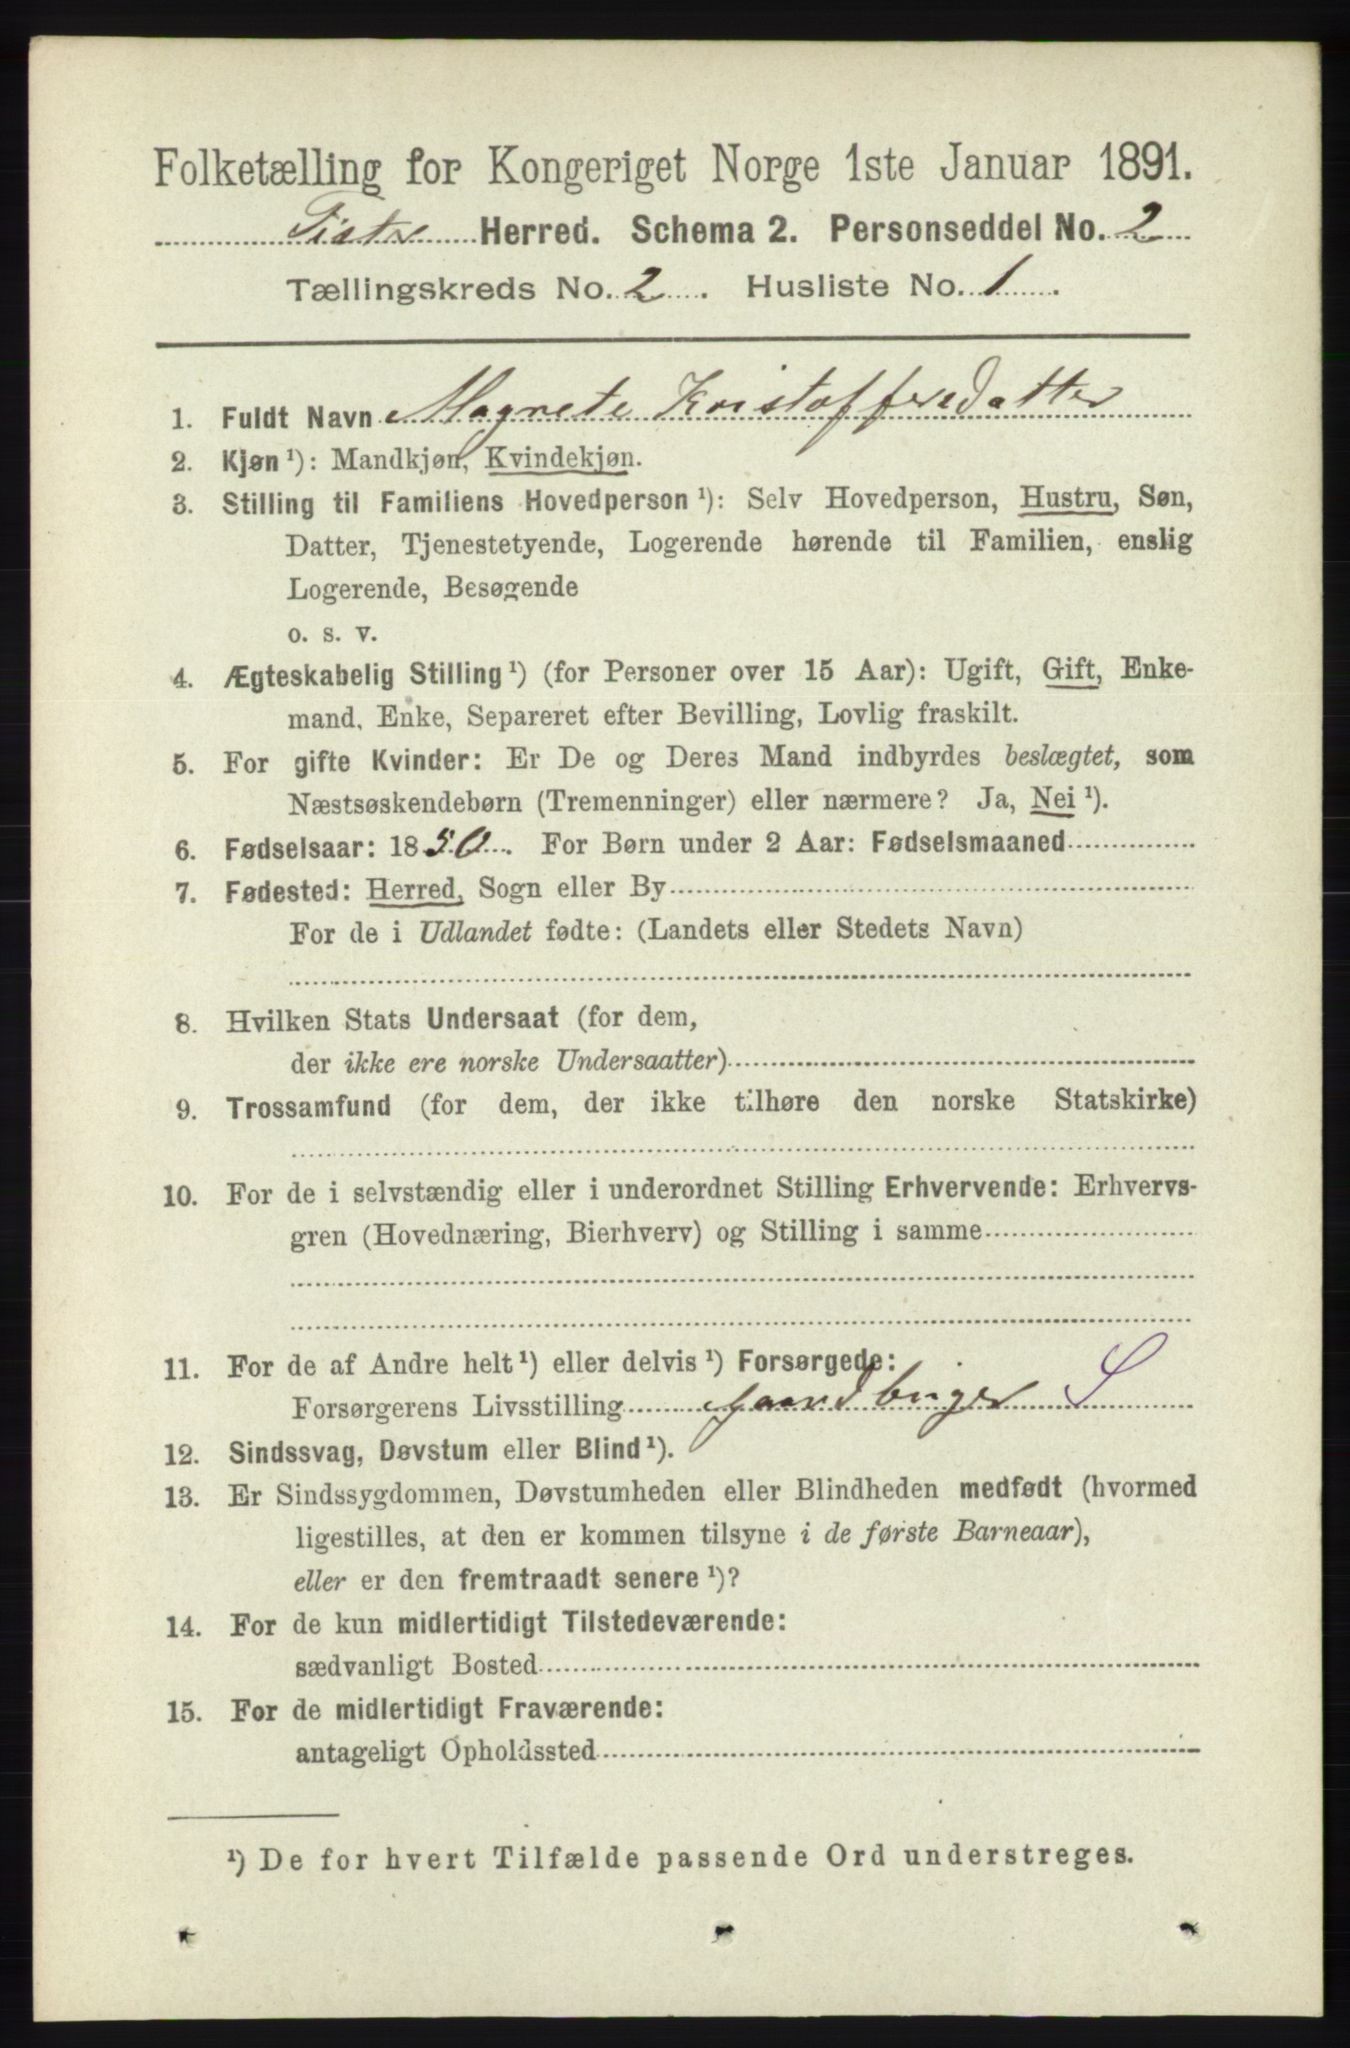 Folketælling for Kongeriget Norge 1ste Januar 1891.
Fister Herred. Schema 2. Personseddel No. 2
Tællingskreds No. 2. Husliste No. 1.
1. Fuldt Navn Magrete Kristoffersdatter
2. Kjøn ¹): Mandkjøn, Kvindekjøn.
3. Stilling til Familiens Hovedperson ¹): Selv Hovedperson, Hustru, Søn,
Datter, Tjenestetyende, Logerende hørende til Familien, enslig
Logerende, Besøgende
o. s. v.
4. Ægteskabelig Stilling ¹) (for Personer over 15 Aar): Ugift, Gift, Enke-
mand, Enke, Separeret efter Bevilling, Lovlig fraskilt.
5. For gifte Kvinder: Er De og Deres Mand indbyrdes beslægtet, som
Næstsøskendebørn (Tremenninger) eller nærmere? Ja, Nei ¹).
6. Fødselsaar: 1850. For Børn under 2 Aar: Fødselsmaaned
7. Fødested: Herred, Sogn eller By
For de i Udlandet fødte: (Landets eller Stedets Navn)
8. Hvilken Stats Undersaat (for dem,
der ikke ere norske Undersaatter)
9. Trossamfund (for dem, der ikke tilhøre den norske Statskirke)
10. For de i selvstændig eller i underordnet Stilling Erhvervende: Erhvervs-
gren (Hovednæring, Bierhverv) og Stilling i samme
11. For de af Andre helt ¹) eller delvis ¹) Forsørgede:
Forsørgerens Livsstilling Gaardbruger S
12. Sindssvag, Døvstum eller Blind ¹).
13. Er Sindssygdommen, Døvstumheden eller Blindheden medfødt (hvormed
ligestilles, at den er kommen tilsyne i de første Barneaar),
eller er den fremtraadt senere ¹)?
14. For de kun midlertidigt Tilstedeværende:
sædvanligt Bosted
15. For de midlertidigt Fraværende:
antageligt Opholdssted
¹) De for hvert Tilfælde passende Ord understreges.